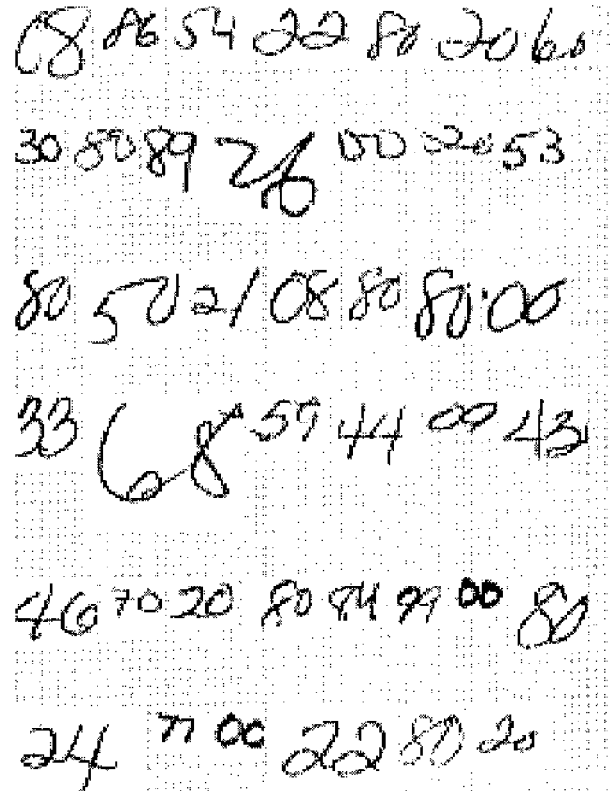 08 86 54 22 80 20 60
30 80 89 26 00 20 53
80 50 21 08 80 80 00
33 68 59 44 00 43
46 70 20 80 84 99 00 80
24 77 00 22 80 20